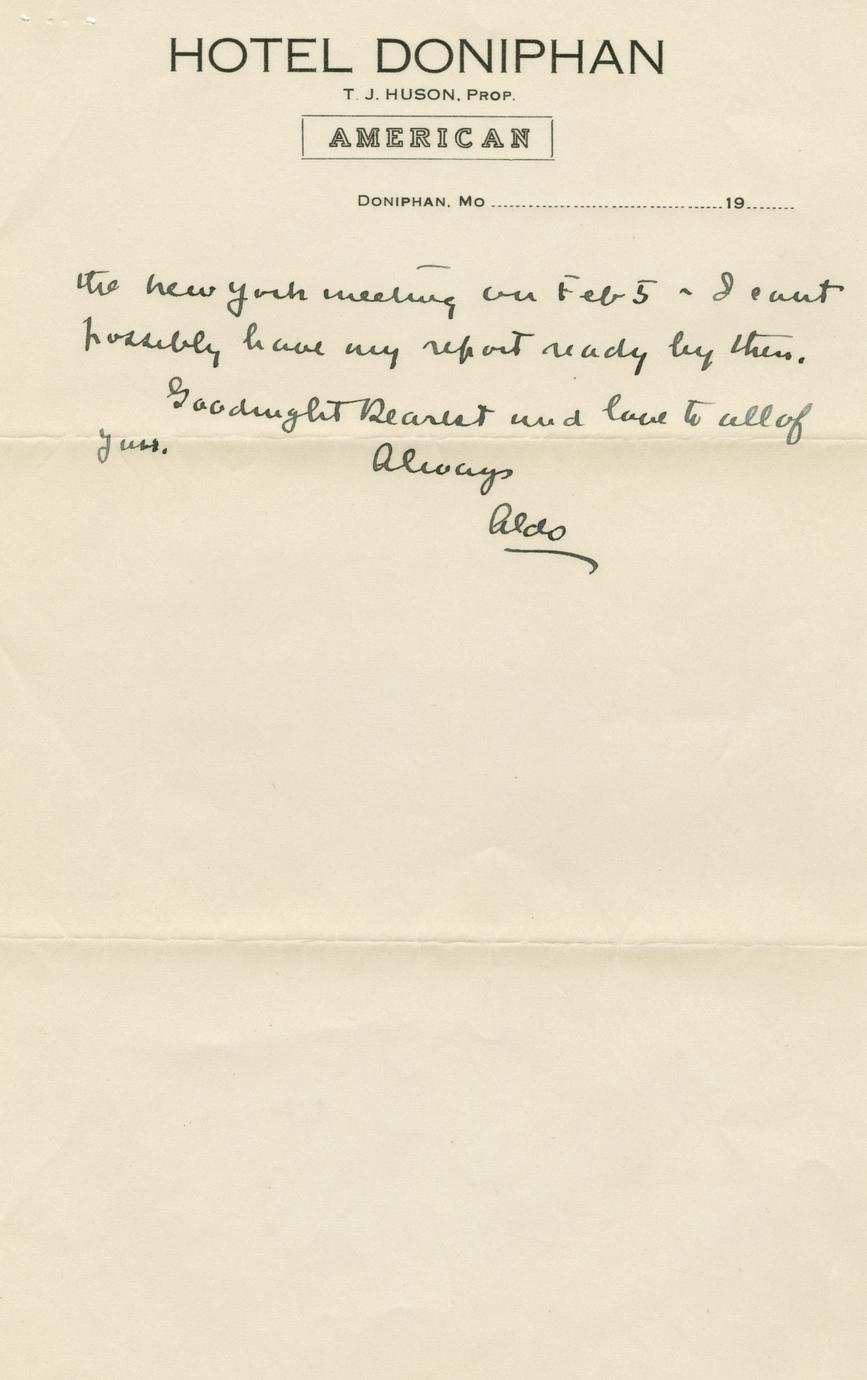 HOTEL DONIPHAN
T. J. HUSON, PROP.
AMERICAN
DONIPHAN, MO ........................................ 19........
the New York meeting on Feb 5 - I cant
possibly have my report ready by then.
Goodnight Dearest and love to all of
you.
Always
Aldo